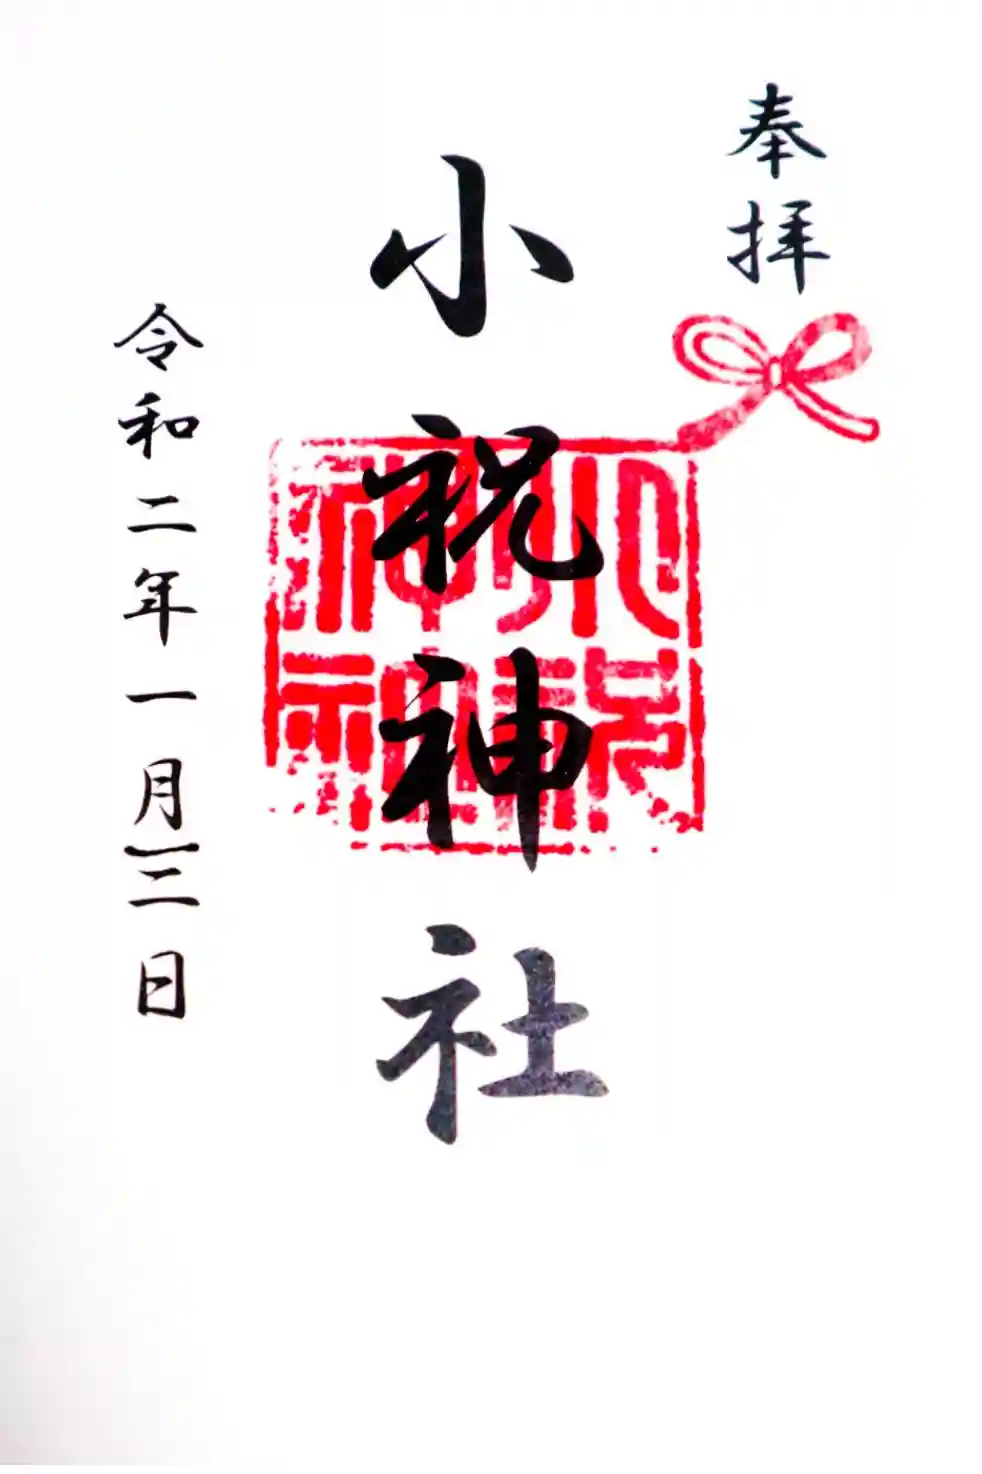 奉拝
小祝神社
小祝
神社
令和二年一月二日